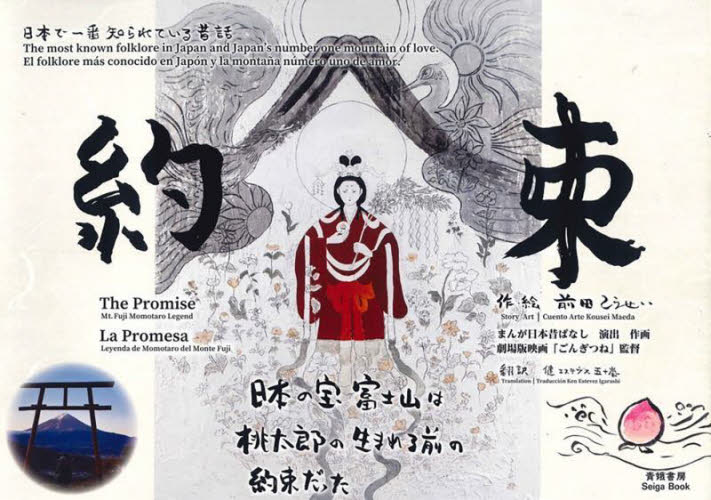 日本で一番 知られている昔話
The most known folklore in Japan and Japan's number one mountain of love.
El folklore más conocido en Japón y la montaña número uno de amor.
約束
The Promise
Mt. Fuji Momotaro Legend
La Promesa
Leyenda de Momotaro del Monte Fuji
作 絵 前田 こうせい
Story Art | Cuento Arte Kousei Maeda
まんが日本昔ばなし 演出 作画
劇場版映画「ごんぎつね」監督
翻訳 健 エステヴス 五十嵐
Translation | Traducción Ken Estevez Igarashi
日本の宝 富士山は
桃太郎の生まれる前の
約束だった
青鵞書房
Seiga Book